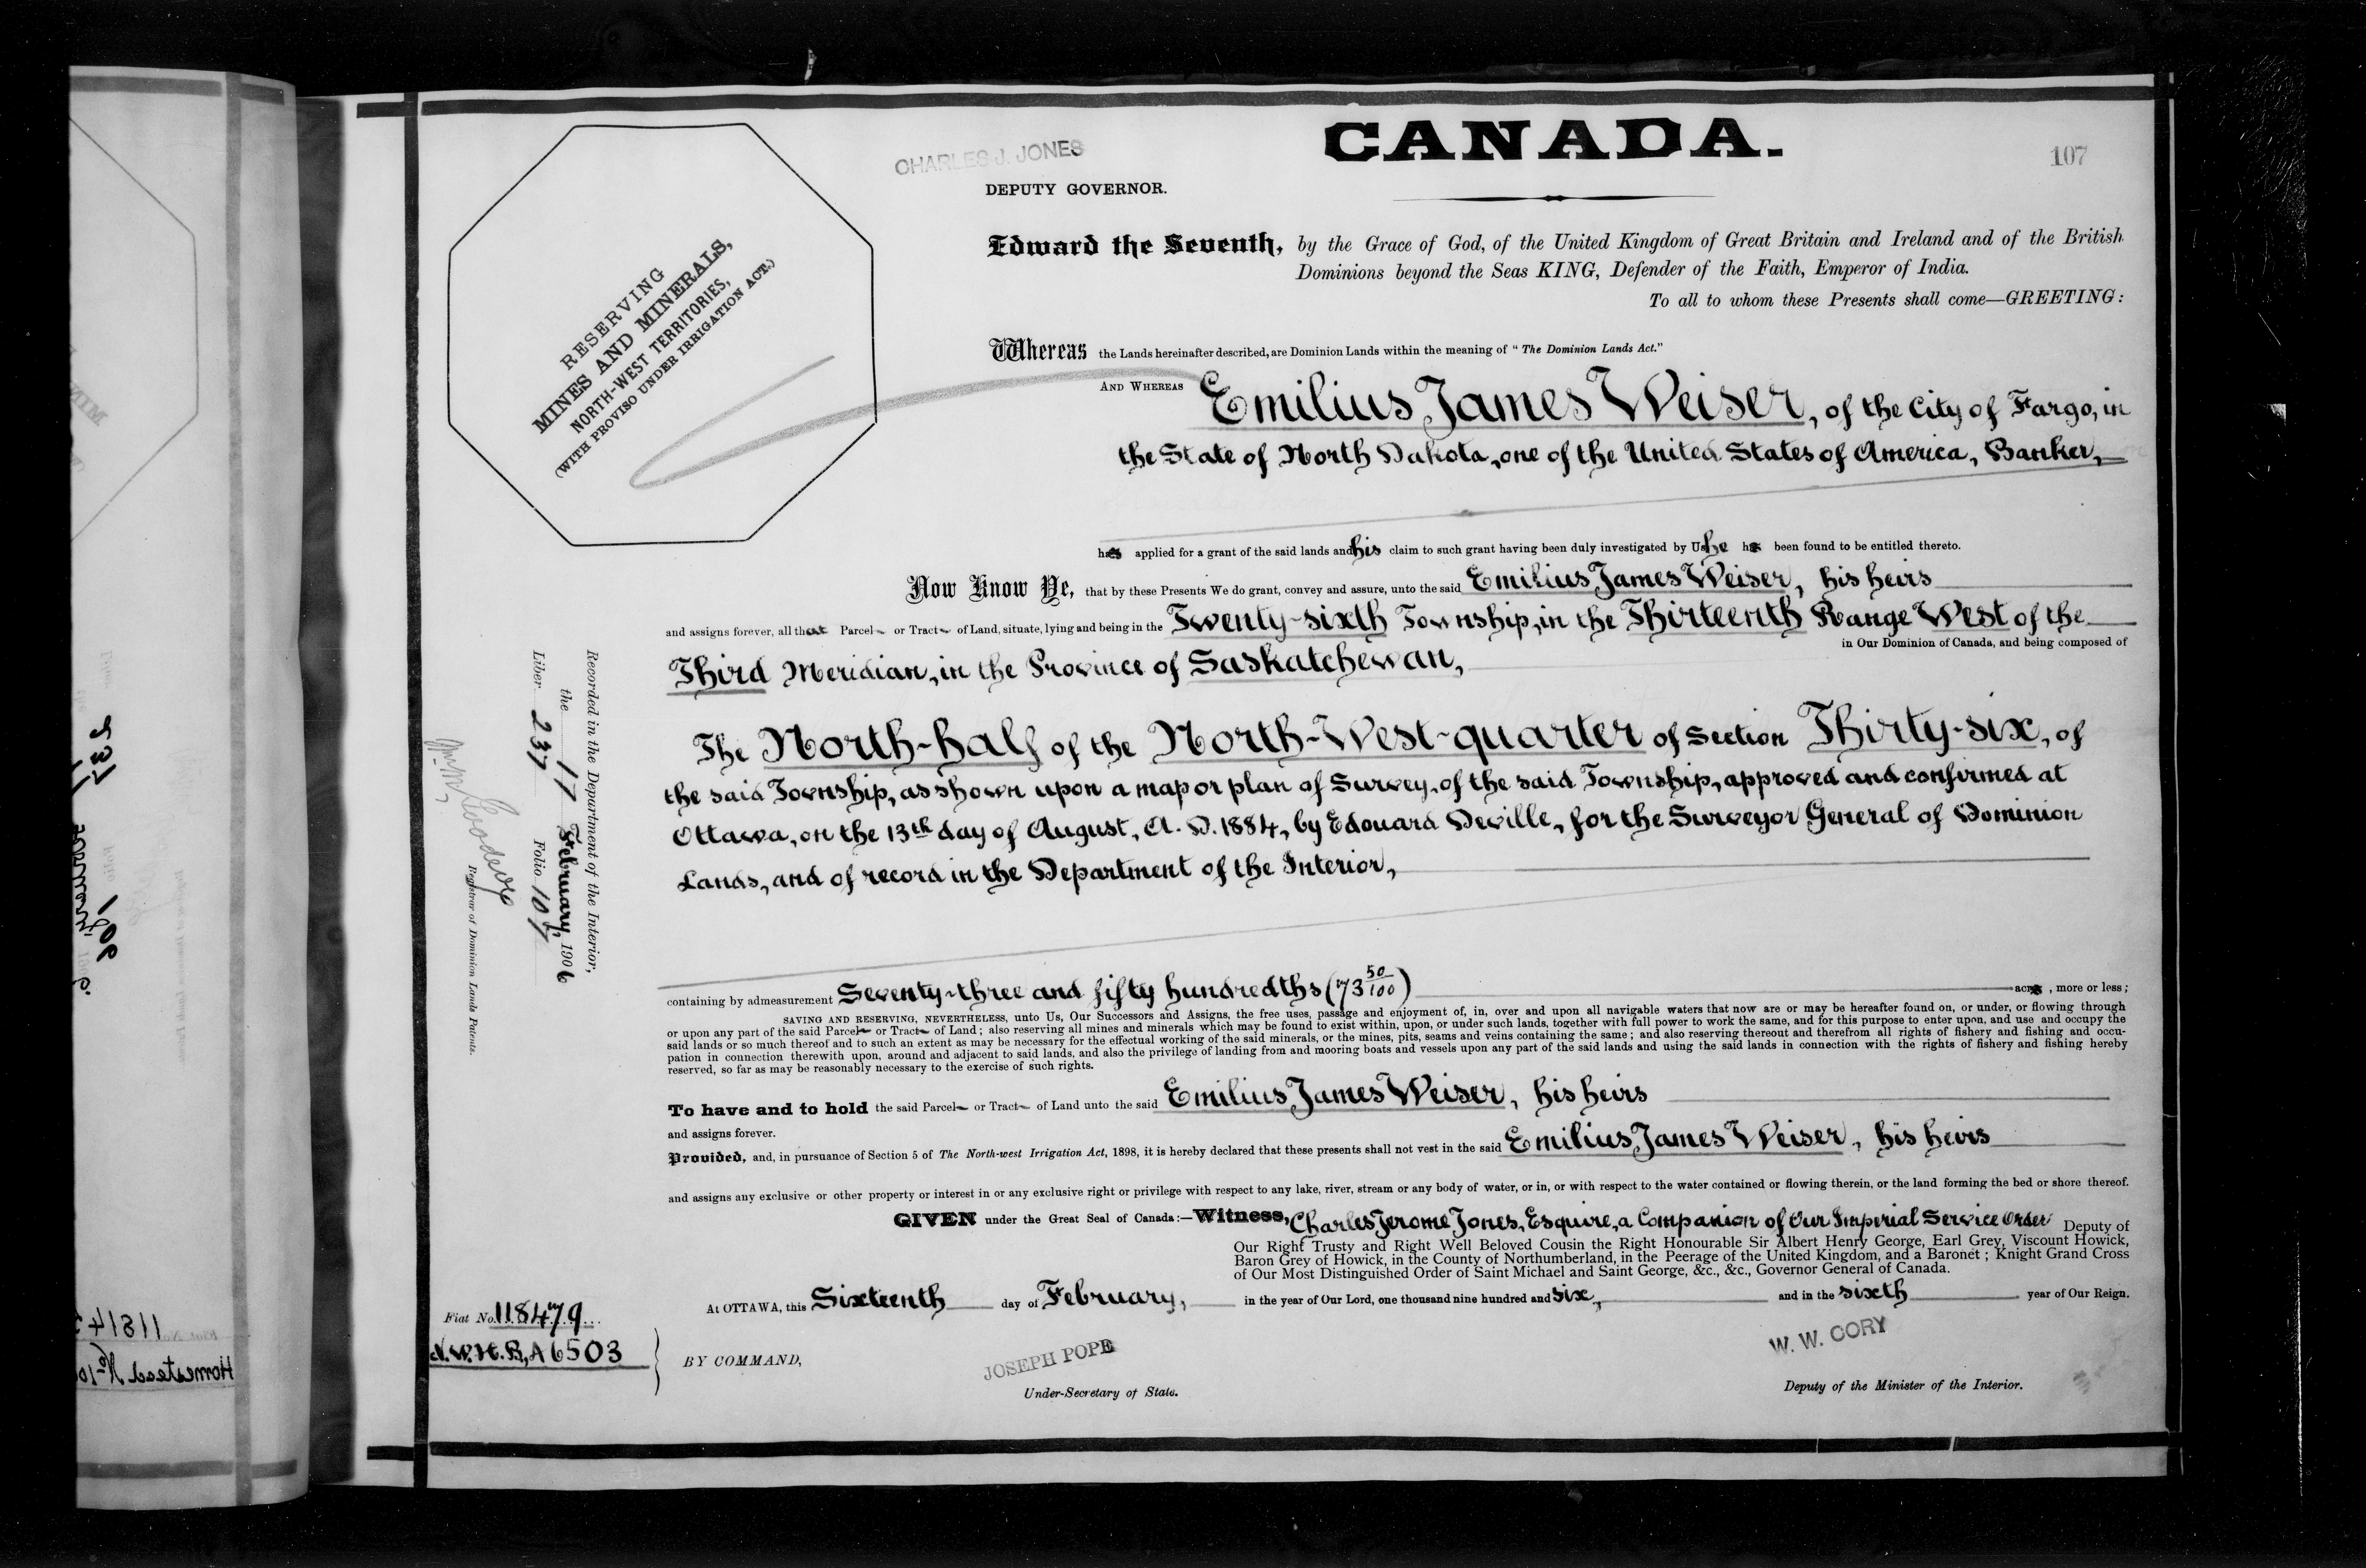 CANADA.
107
CHARLES J. JONES
DEPUTY GOVERNOR.
RESERVING
MINES AND MINERALS,
NORTH-WEST TERRITORIES,
(WITH PROVISO UNDER IRRIGATION ACT.)
Edward the Seventh, by the Grace of God, of the United Kingdom of Great Britain and Ireland and of the British
Dominions beyond the Seas KING, Defender of the Faith, Emperor of India.
To all to whom these Presents shall come—GREETING:
Whereas the Lands hereinafter described, are Dominion Lands within the meaning of "The Dominion Lands Act."
AND WHEREAS Emilius James Weiser, of the City of Fargo, in
the State of North Dakota, one of the United States of America, Banker,
has applied for a grant of the said lands and his claim to such grant having been duly investigated by Us he has been found to be entitled thereto.
Now Know Ye, that by these Presents We do grant, convey and assure, unto the said Emilius James Weiser, his heirs
and assigns forever, all that Parcel or Tract of Land, situate, lying and being in the Twenty-sixth Township, in the Thirteenth Range West of the
in Our Dominion of Canada, and being composed of
Third Meridian, in the Province of Saskatchewan,
The North-half of the North-West-quarter of Section Thirty-six, of
the said Township, as shown upon a map or plan of Survey, of the said Township, approved and confirmed at
Ottawa, on the 13th day of August, A. D. 1884, by Edouard Deville, for the Surveyor General of Dominion
Lands, and of record in the Department of the Interior,
containing by admeasurement Seventy-three and fifty hundredths (73 50/100) acres, more or less;
SAVING AND RESERVING, NEVERTHELESS, unto Us, Our Successors and Assigns, the free uses, passage and enjoyment of, in, over and upon all navigable waters that now are or may be hereafter found on, or under, or flowing through
or upon any part of the said Parcel or Tract of Land; also reserving all mines and minerals which may be found to exist within, upon, or under such lands, together with full power to work the same, and for this purpose to enter upon, and use and occupy the
said lands or so much thereof and to such an extent as may be necessary for the effectual working of the said minerals, or the mines, pits, seams and veins containing the same; and also reserving thereout and therefrom all rights of fishery and fishing and occu-
pation in connection therewith upon, around and adjacent to said lands, and also the privilege of landing from and mooring boats and vessels upon any part of the said lands and using the said lands in connection with the rights of fishery and fishing hereby
reserved, so far as may be reasonably necessary to the exercise of such rights.
To have and to hold the said Parcel or Tract of Land unto the said Emilius James Weiser, his heirs
and assigns forever.
Provided, and, in pursuance of Section 5 of The North-west Irrigation Act, 1898, it is hereby declared that these presents shall not vest in the said Emilius James Weiser, his heirs
and assigns any exclusive or other property or interest in or any exclusive right or privilege with respect to any lake, river, stream or any body of water, or in, or with respect to the water contained or flowing therein, or the land forming the bed or shore thereof.
GIVEN under the Great Seal of Canada:—Witness, Charles Jerome Jones, Esquire, a Companion of Our Imperial Service Order Deputy of
Our Right Trusty and Right Well Beloved Cousin the Right Honourable Sir Albert Henry George, Earl Grey, Viscount Howick,
Baron Grey of Howick, in the County of Northumberland, in the Peerage of the United Kingdom, and a Baronet; Knight Grand Cross
of Our Most Distinguished Order of Saint Michael and Saint George, &c., &c., Governor General of Canada.
At OTTAWA, this Sixteenth day of February, in the year of Our Lord, one thousand nine hundred and six, and in the sixth year of Our Reign.
Fiat No. 118479
N.W.H.B, A 6503
BY COMMAND,
JOSEPH POPE
Under-Secretary of State.
W. W. CORY
Deputy of the Minister of the Interior.
Recorded in the Department of the Interior,
the 17 February, 1906
Liber 237 Folio 107
Registrar of Dominion Lands Patents.